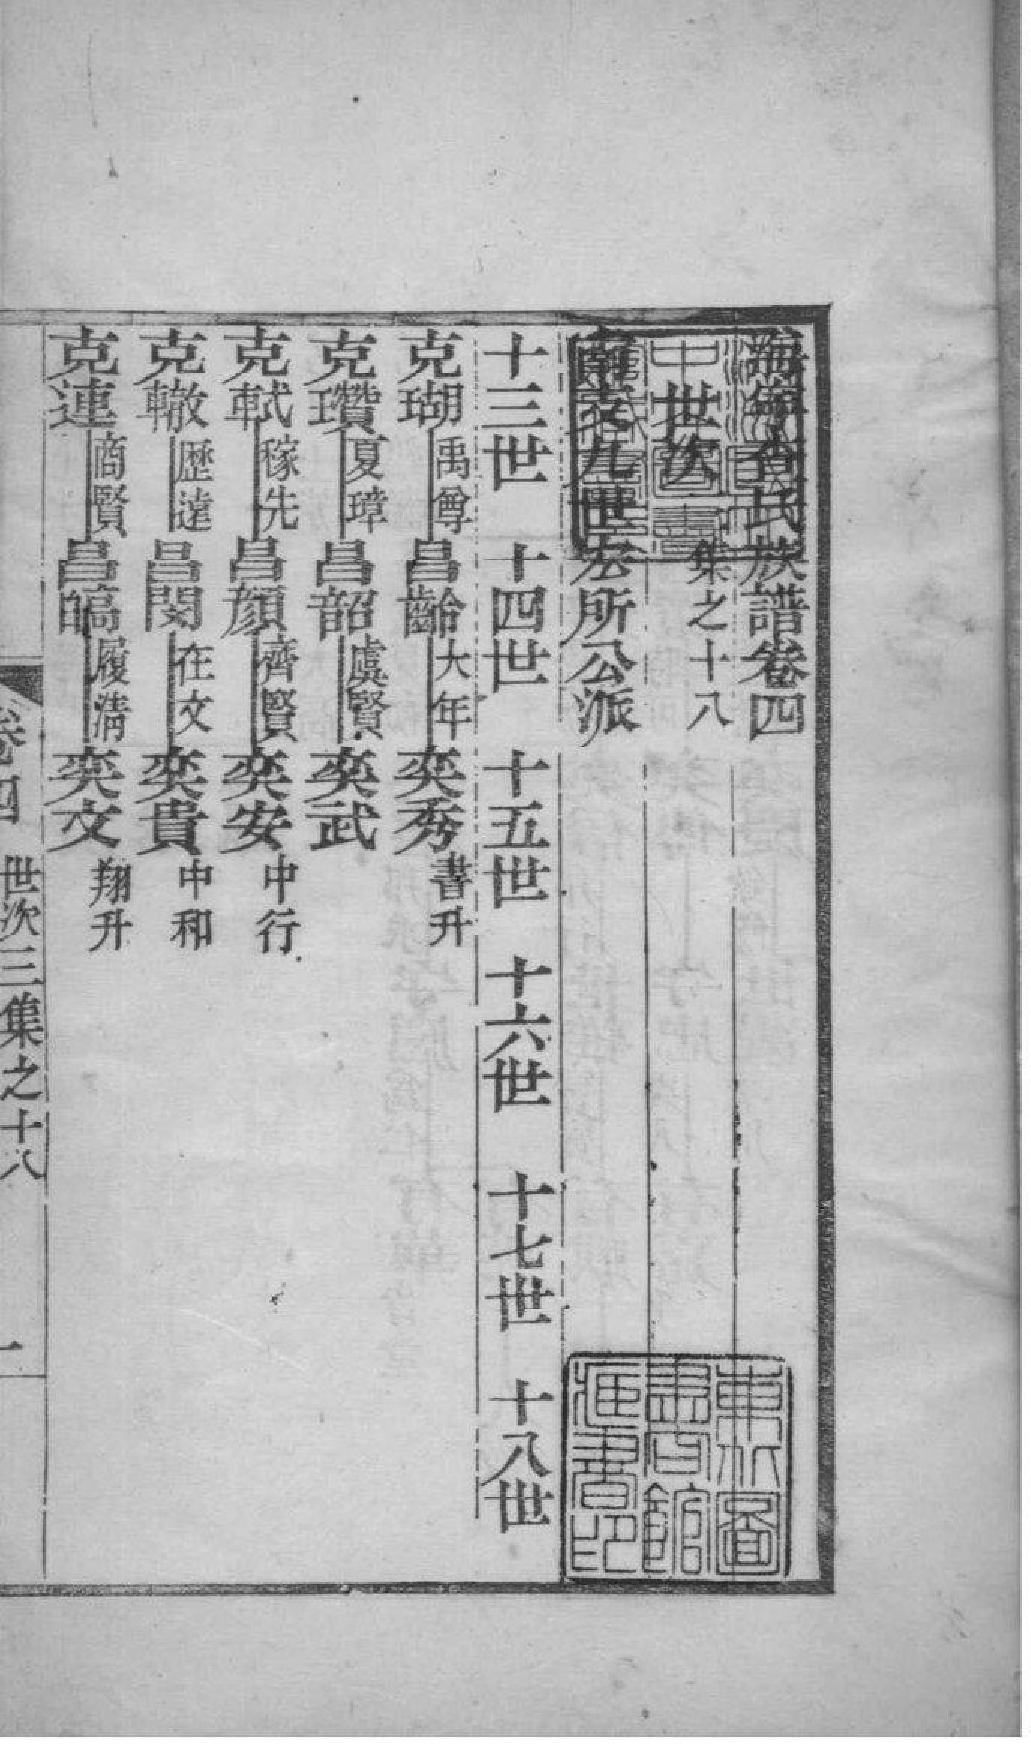 海寧查氏族譜卷四
世次 集之十八
南支九世宏所公派
十三世 十四世 十五世 十六世 十七世 十八世
克瑚 禹尊 昌齡 大年 奕秀 書升
克瓚 夏璋 昌韶 虞賢 奕武
克軾 稼先 昌顏 齊賢 奕安 中行
克轍 歷遠 昌閔 在文 奕貴 中和
克連 商賢 昌皜 履淸 奕文 翔升
卷四 世次三集之十八 一
東北圖書館藏書印